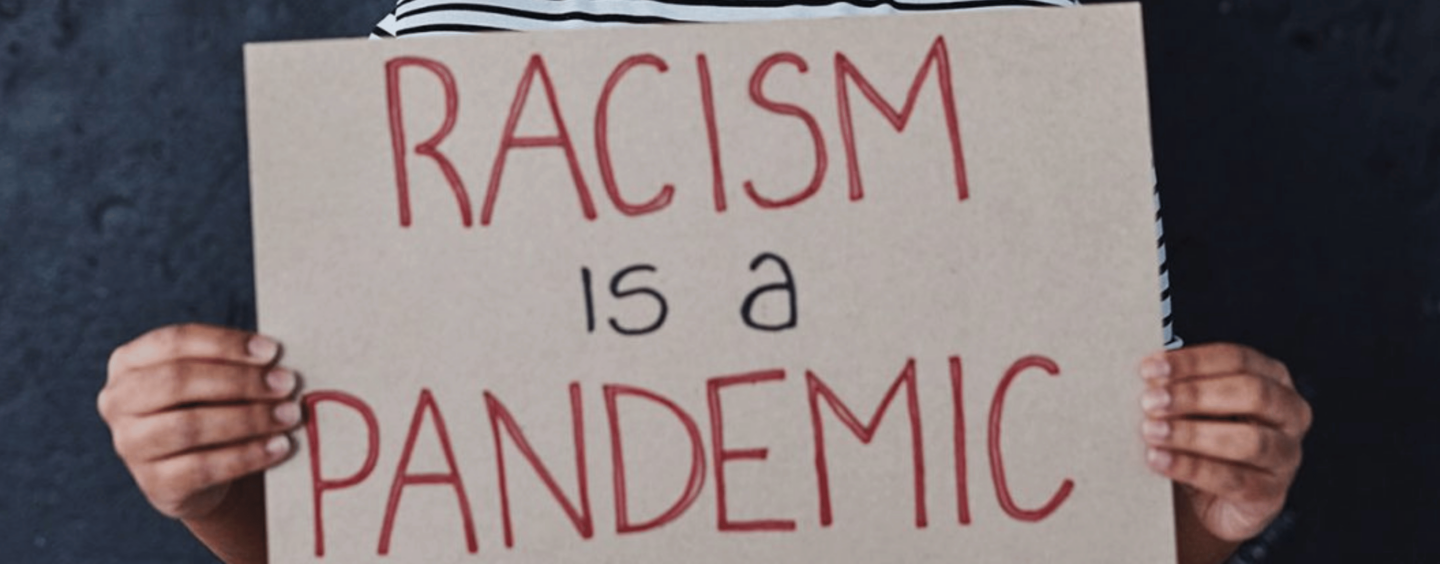 RACISM
is a
PANDEMIC